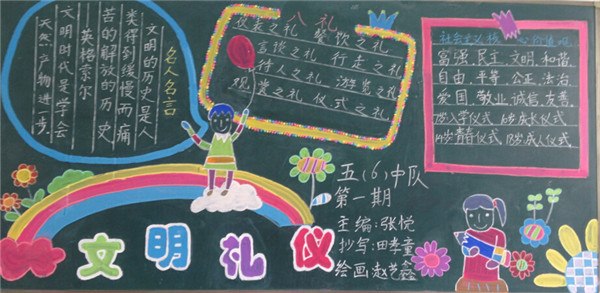 名人名言
文明的历史是人
类得到缓慢而痛
苦的解放的历史
英格索尔
文明时代是学会
天然产物进一步
八礼
仪表之礼 餐饮之礼
言谈之礼 行走之礼
待人之礼 游览之礼
观赏之礼 仪式之礼
社会主义核心价值观
富强,民主,文明,和谐,
自由,平等,公正,法治,
爱国,敬业,诚信,友善,
7岁入学仪式 10岁成长仪式
14岁青春仪式 18岁成人仪式
五(6)中队
第一期
主编:张悦
抄写:田孝童
绘画:赵艺鑫
文明礼仪